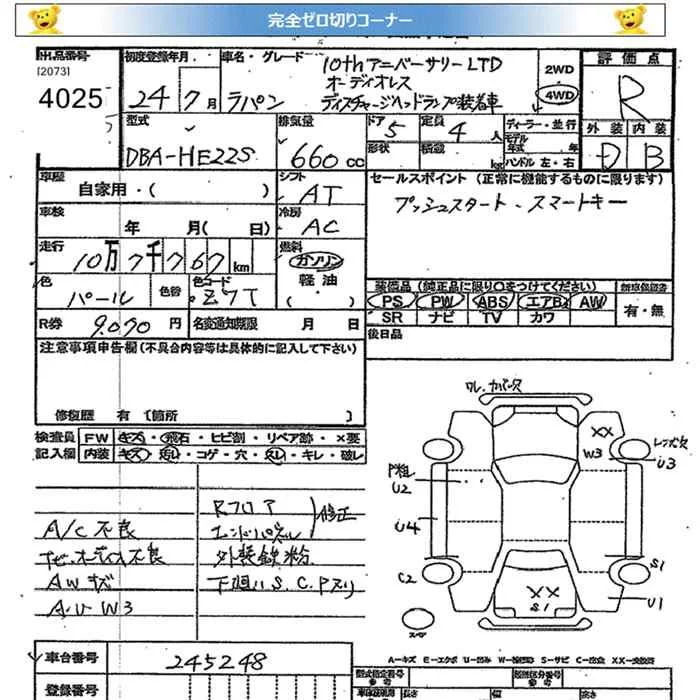 完全ゼロ切りコーナー
出品番号
[2073]
4025
初度登録年月
24年7月
車名・グレード
ラパン
10thアニバーサリーLTD
オーディオレス
ディスチャージヘッドランプ装着車
2WD
4WD
評価点
R
外装 内装
D B
型式
DBA-HE22S
排気量
660 CC
ドア 5
形状
定員 4 人
積載 kg
ディーラー・並行
モデル年式 年
ハンドル 左・右
車歴
自家用・( )
シフト
AT
セールスポイント (正常に機能するものに限ります)
プッシュスタート、スマートキー
車検
年 月( 日)
冷房
AC
走行
10万7千767 km
燃料
ガソリン
軽油
( )
色
パール
色替
色コード
Z7T
装備品 (純正品に限り○をつけてください)
PS PW ABS エアB AW
SR ナビ TV カワ
新車保証書
有・無
R券 9.070 円
名変通知期限 月 日
後日品
注意事項申告欄(不具合内容等は具体的に記入して下さい)
修復歴 有 [箇所 ]
検査員
記入欄
FW キズ・飛石・ヒビ割・リペア跡・×要
内装 キズ・汚レ・コゲ・穴・スレ・キレ・破レ
A/C不良
AWキズ
A.U W3
Rフロア
エンドパネル
修正
外装鉄粉
下廻りS.C.Pズリ
XX
W3
U3
P粗
U2
U4
C2
S1
XX
S1
U1
スペア
A-キズ E-エクボ U-凹み W-補修跡 S-サビ C-腐食 XX-交換済
車台番号
245248
登録番号
型式指定番号
類別区分番号
長さ